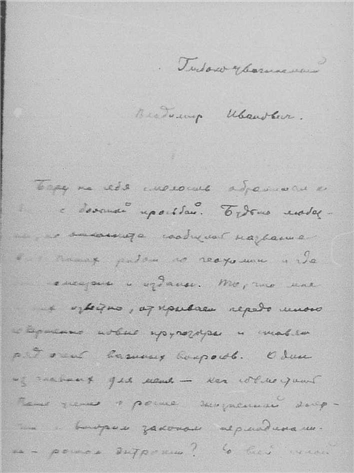 Глубокоуважаемый
Владимир Иванович.
Беру на себя смелость обратиться к
с большой просьбой. Будьте любез-
сообщить название
Ваших работ по геохимии и где
помещены и изданы. То, что мне
них известно, открывает передо мною
совершенно новые кругозоры и ставит
ряд очень важных вопросов. Один
из главных для меня – как совместить
Ваше учение о росте жизненной энер-
гии с вторым законом термодинами-
ки – ростом энтропии? Со всей